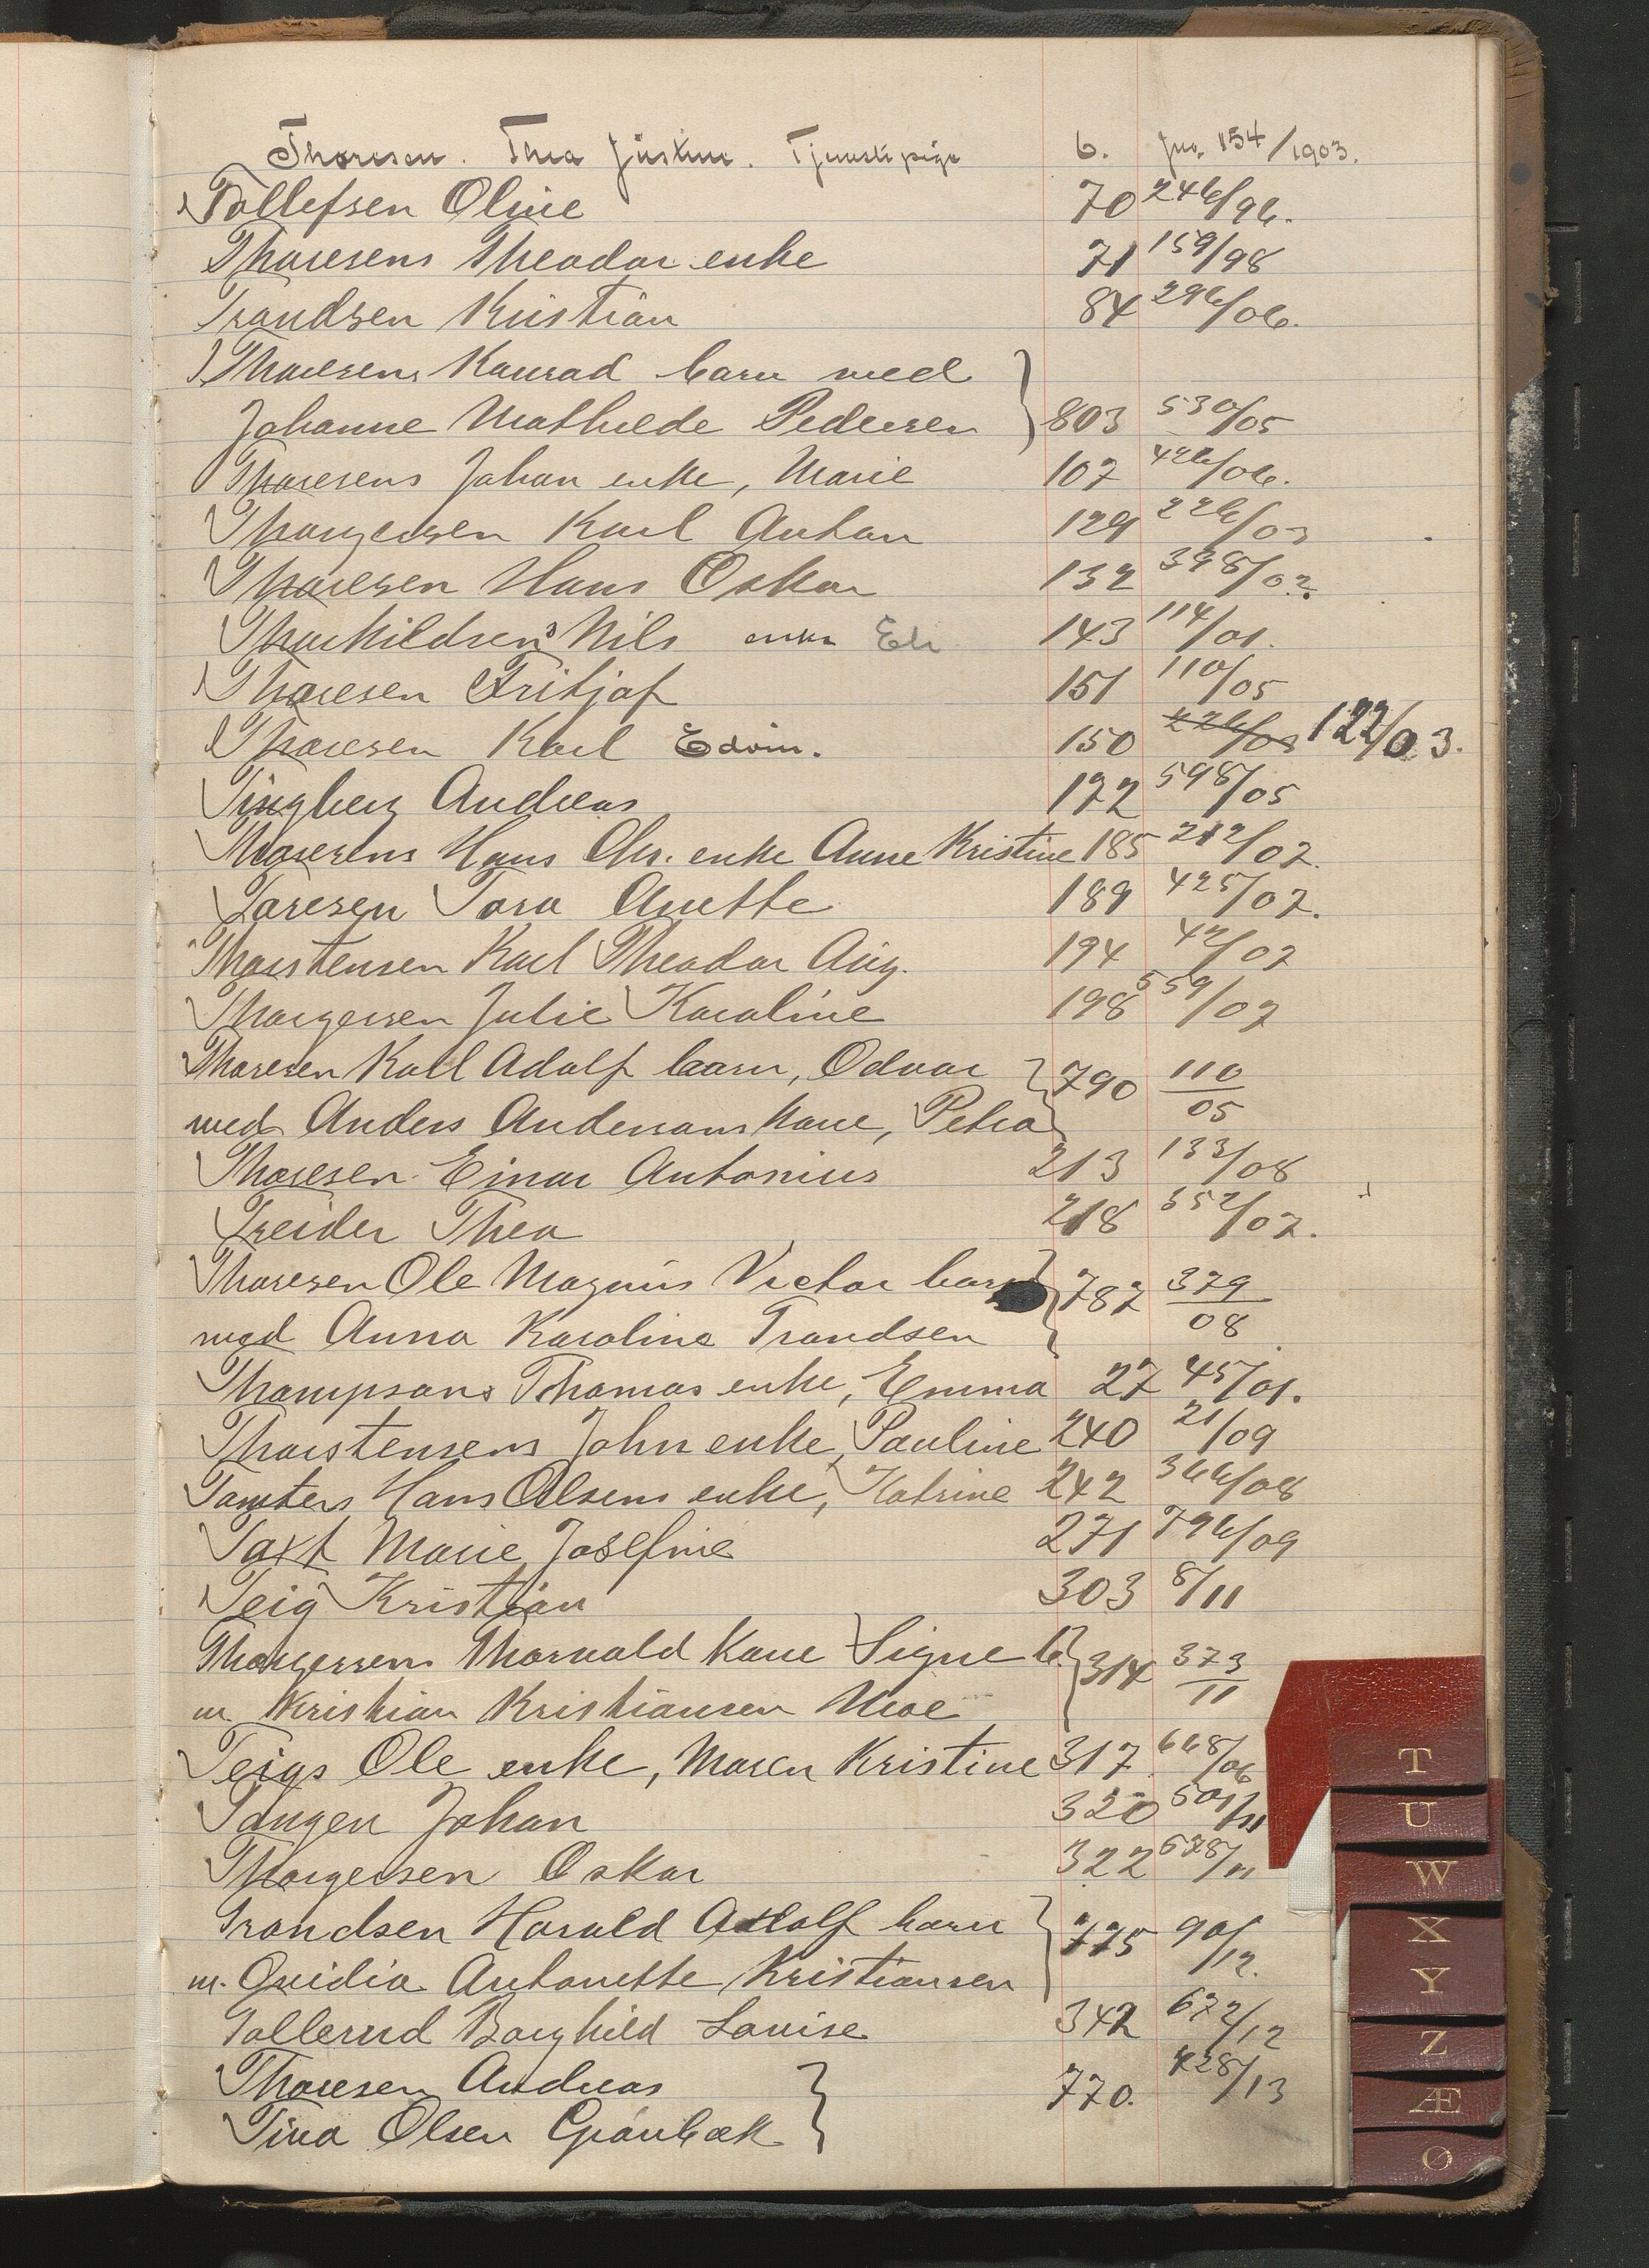 Thoresen. Thea Justine. Tjenestepige 6. Jno. 154/1903.
Tollefsen Oline 70 246/96.
Thoresens Theodor enke 71 159/98
Trandsen Kristian 84 296/06.
Thoresens Konrad barn med
Johanne Mathilde Pedersen 803 530/05
Thoresens Johan enke, Marie 107 426/06.
Thorgersen Karl Anton 129 226/03
Thoresen Hans Oskar 132 398/02.
Thorkildsen's Nils enke Eli 143 114/01.
Thoresen Fritjof 151 110/05
Thoresen Karl Edvin. 150 226/03 122/03.
Tingberg Andreas 172 598/05
Thoresens Hans Chr. enke Anne Kristine 185 212/07.
Toresen Tora Anette 189 425/07.
Thorstensen Karl Theodor Aug. 194 42/07
Thorgersen Julie Karoline 198 559/07
Thoresen Karl Adolf barn, Odvar 790 110/05
med Anders Andersens kone, Petra
Thoresen Einar Antonius 213 133/08
Treider Thea 218 552/07.
Thoresen Ole Magnus Victor barn 787 379/08
med Anna Karoline Trandsen
Thompsons Thomas enke, Emma 27 45/01.
Thorstensens John enke, Pauline 240 21/09
Tomters Hans Olsens enke, Katrine 242 366/08
Taxt Marie Josefine 271 796/09
Teig Kristian 303 8/11
Thorgersens Thorvald kone Signe b. 314 373/11
m. Kristian Kristiansen Moe
Teigs Ole enke, Maren Kristine 317 668/06
Tangen Johan 320 501/11
Thorgersen Oskar 322 678/11
Trandsen Harald Adolf barn 775 90/12.
m. Ovidia Antonette Kristiansen
Tollerud Borghild Lovise 342 672/12
Thoresen Andreas 770. 428/13
Tina Olsen Grønbæk
T
U
W
X
Y
Z
Æ
Ø